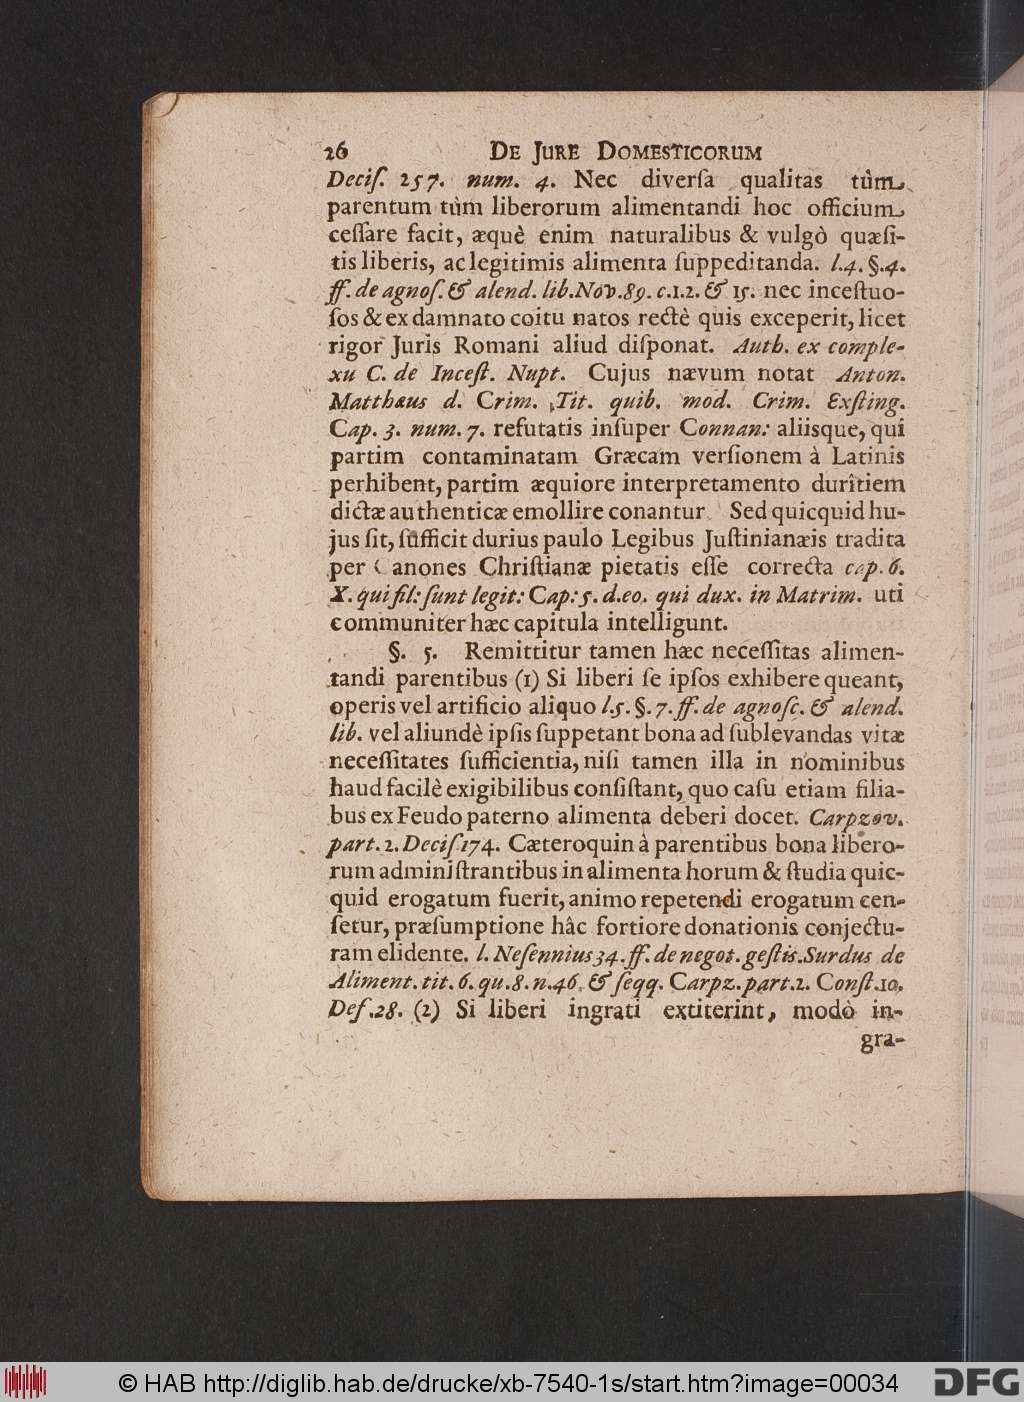 26 De Jure Domesticorum
Deciſ. 257. num. 4. Nec diverſa qualitas tùm
parentum tùm liberorum alimentandi hoc officium
ceſſare facit, æquè enim naturalibus & vulgò quæſi-
tis liberis, ac legitimis alimenta ſuppeditanda. l.4. §.4.
ff. de agnoſ. & alend. lib. Nov. 89. c.1.2. & 15. nec inceſtuo-
ſos & ex damnato coitu natos rectè quis exceperit, licet
rigor Juris Romani aliud diſponat. Auth. ex comple-
xu C. de Inceſt. Nupt. Cujus nævum notat Anton.
Matthæus d. Crim. Tit. quib. mod. Crim. Exſting.
Cap. 3. num. 7. refutatis inſuper Connan: aliisque, qui
partim contaminatam Græcam verſionem à Latinis
perhibent, partim æquiore interpretamento duritiem
dictæ authenticæ emollire conantur. Sed quicquid hu-
jus ſit, ſufficit durius paulo Legibus Juſtinianæis tradita
per Canones Chriſtianæ pietatis eſſe correcta cap. 6.
X. qui fil: ſunt legit: Cap: 5. d. eo. qui dux. in Matrim. uti
communiter hæc capitula intelligunt.
§. 5. Remittitur tamen hæc neceſſitas alimen-
tandi parentibus (1) Si liberi ſe ipſos exhibere queant,
operis vel artificio aliquo l.5. §. 7. ff. de agnoſc. & alend.
lib. vel aliundè ipſis ſuppetant bona ad ſublevandas vitæ
neceſſitates ſufficientia, niſi tamen illa in nominibus
haud facilè exigibilibus conſiſtant, quo caſu etiam filia-
bus ex Feudo paterno alimenta deberi docet. Carpzov.
part. 2. Deciſ 174. Cæteroquin à parentibus bona libero-
rum adminiſtrantibus in alimenta horum & ſtudia quic-
quid erogatum fuerit, animo repetendi erogatum cen-
ſetur, præſumptione hâc fortiore donationis conjectu-
ram elidente. l. Neſennius 34. ff. de negot. geſtis. Surdus de
Aliment. tit. 6. qu. 8. n. 46. & ſeqq. Carpz. part. 2. Conſt. 10.
Def. 28. (2) Si liberi ingrati extiterint, modò in-
gra-
© HAB http://diglib.hab.de/drucke/xb-7540-1s/start.htm?image=00034
DFG